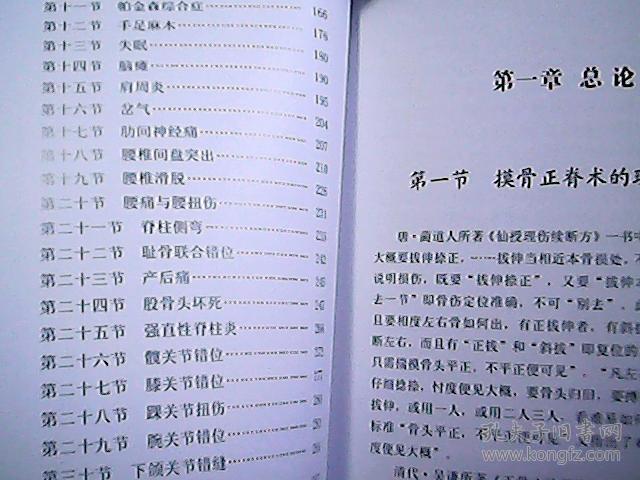 第十一节 帕金森综合症 166
第十二节 手足麻木 176
第十三节 失眠 180
第十四节 脑瘫 190
第十五节 肩周炎 195
第十六节 岔气 204
第十七节 肋间神经痛 207
第十八节 腰椎间盘突出 210
第十九节 腰椎滑脱 225
第二十节 腰痛与腰扭伤 231
第二十一节 脊柱侧弯
第二十二节 耻骨联合错位 242
第二十三节 产后痛 245
第二十四节 股骨头坏死 247
第二十五节 强直性脊柱炎
第二十六节 髋关节错位
第二十七节 膝关节错位
第二十八节 踝关节扭伤
第二十九节 腕关节错位
第三十节 下颌关节错缝
第一章 总论
第一节 摸骨正脊术的
唐·蔺道人所著《仙授理伤续断方》一书中
大概要拔伸捺正,……拔伸当相近本骨损处,不
说明损伤,既要“拔伸捺正”,又要“拔伸
去一节”即骨伤定位准确,不可“别去”。
且要相度左右骨如何出,有正拔伸者,有斜
断左右,而且有“正拔”和“斜拔”即复位的
只需揣摸骨头平正,不平正便可见”。“凡左
仔细捻捺,忖度便见大概,要骨头归旧,要
拔伸,或用一人,或用二人三人,看难易如何
标准“骨头平正,不平正便可见
度便见大概”。
清代·吴谦所著《
孔夫子旧书网
www.kongfz.com